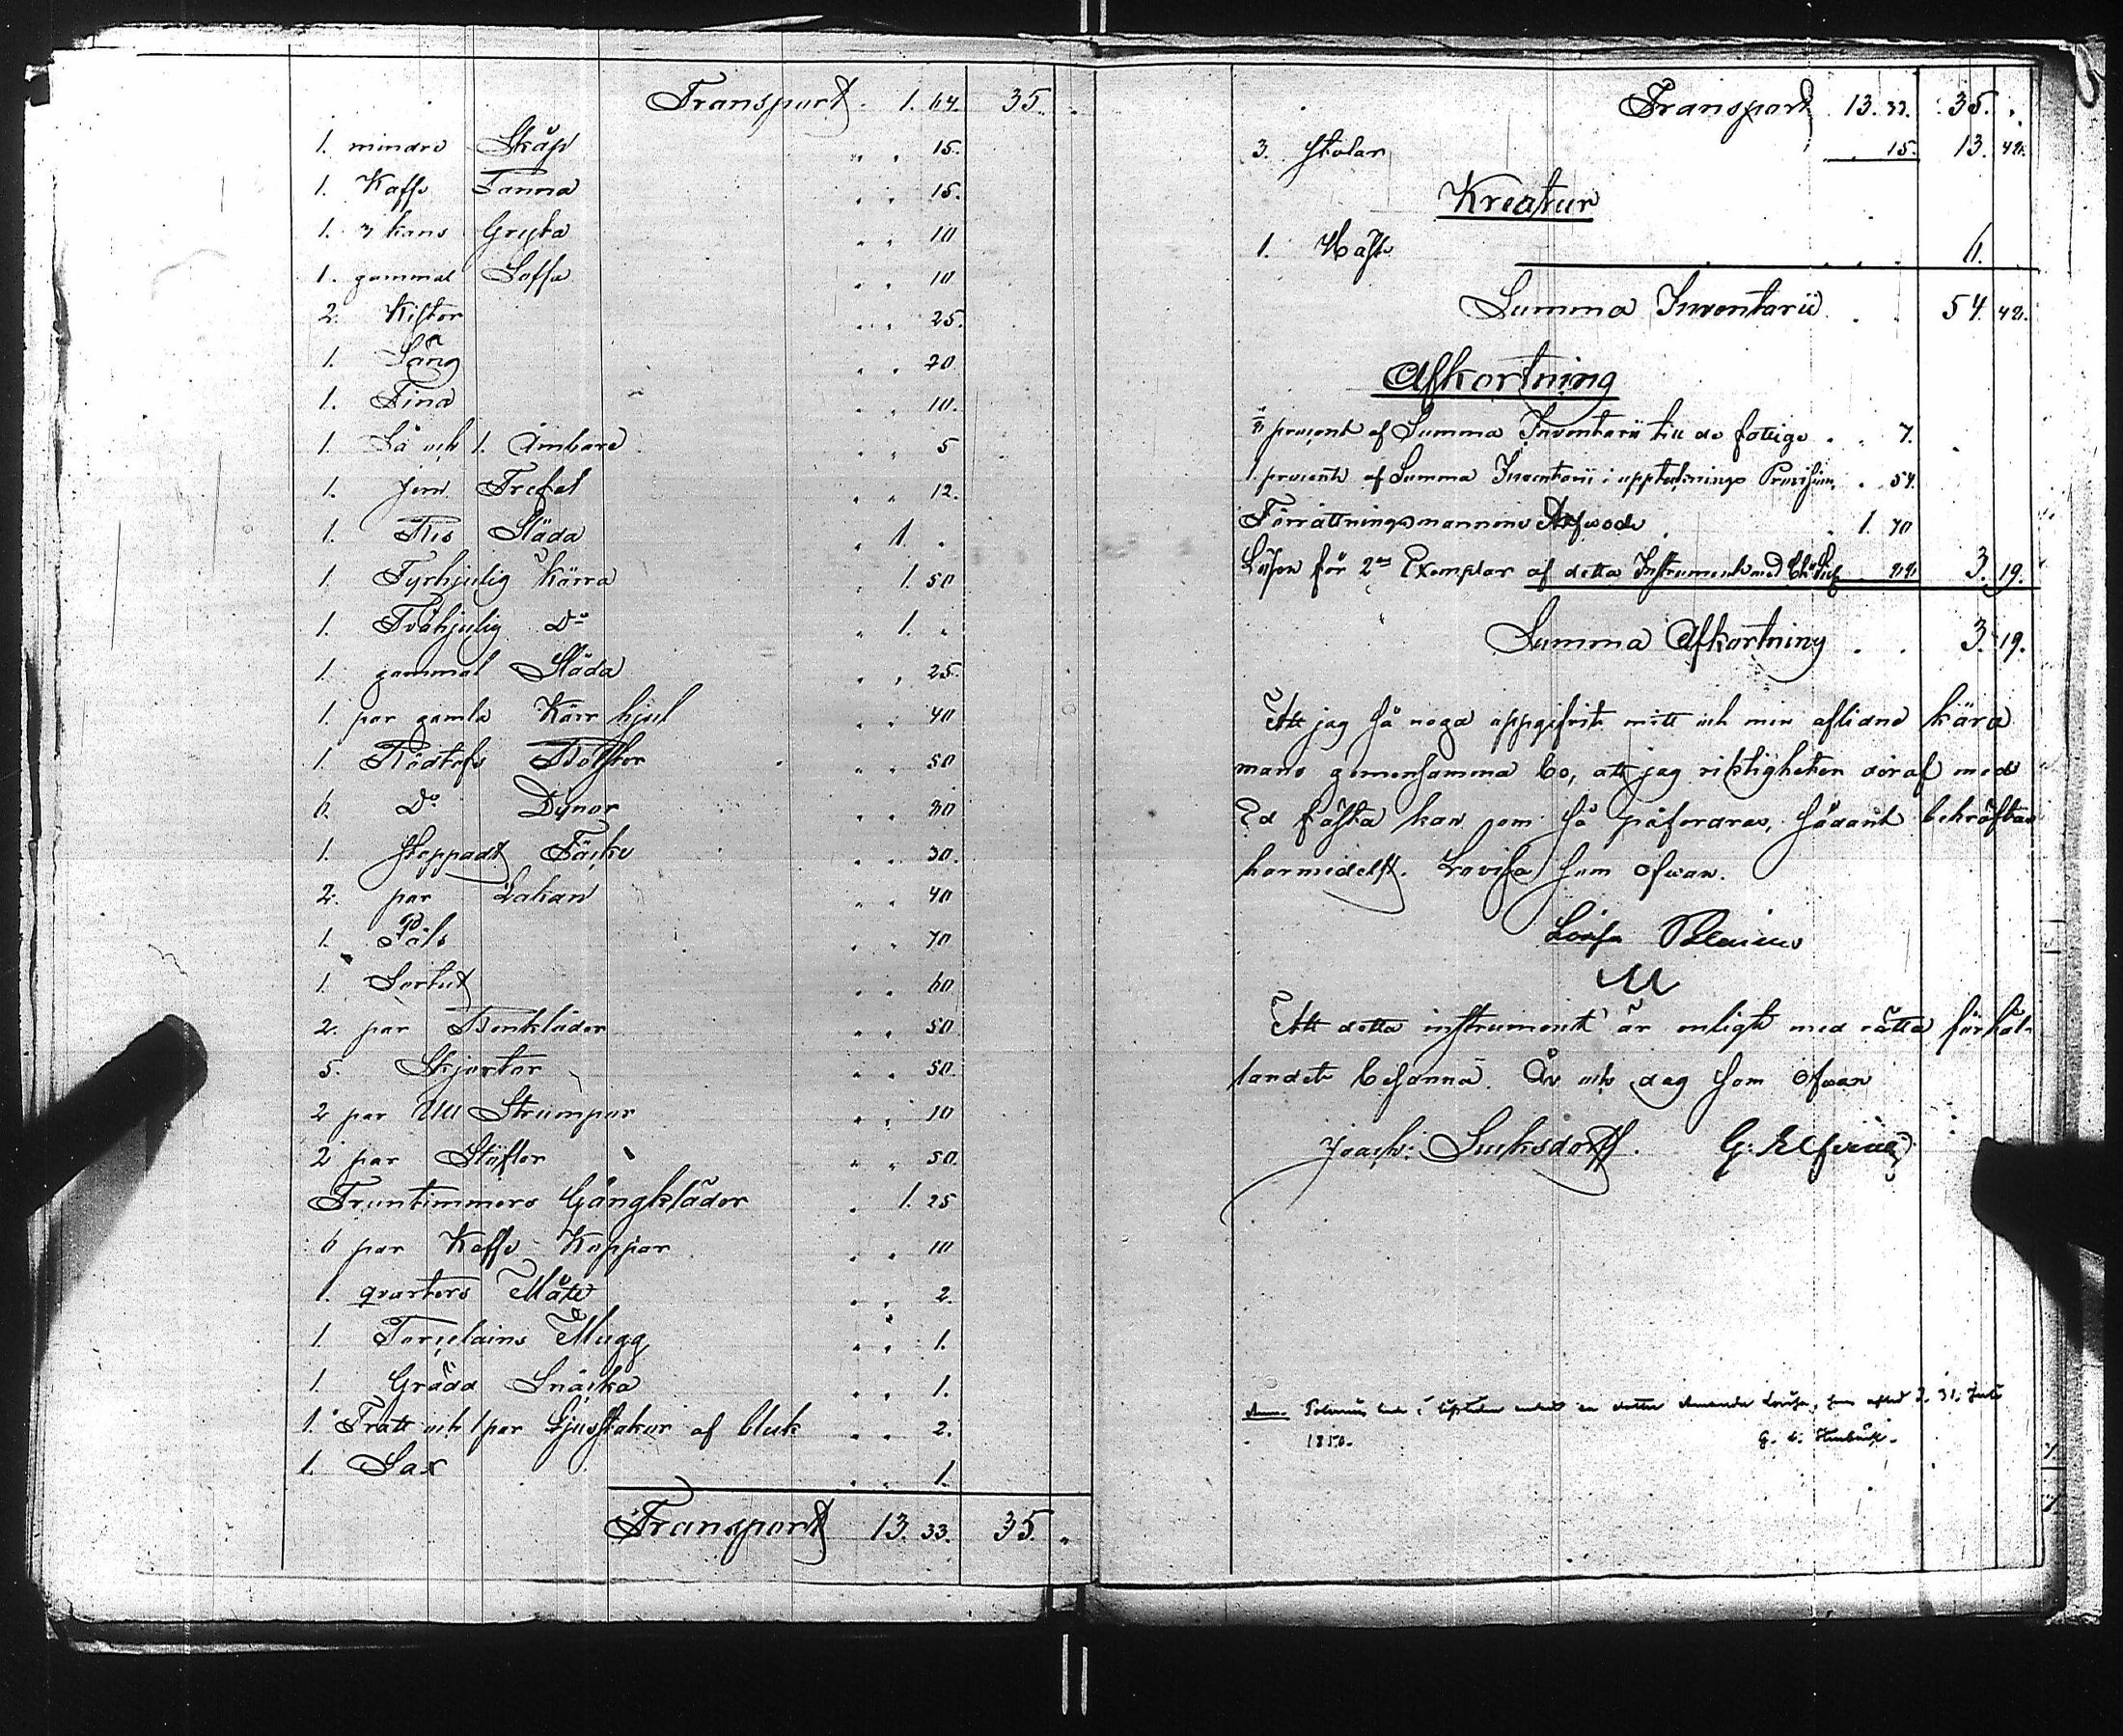 Transport . 1. 64. 35. "
1. mindre Skåp " " 15.
1. Kaffe Panna " " 15.
1. 3 kans Gryta " " 10
1. gammal Soffa " " 10
2. Kistor " " 25.
1. Säng " " 20
1. Tina " " 10.
1. Så och 1. Ämbare " " 5
1. jern Trefot " " 12.
1. Res Släda " 1. "
1. Fyrhjulig Kärra " 1. 50
1. Tvåhjulig Do " 1. "
1. gammal Släda " " 25.
1. par gamla Kärr hjul " " 40
1. Bolster " " 50
6. Do Dynor " " 30
1. stoppadt Täcke " " 30.
2. par Lakan " " 40
1. Päls " " 70
1. Sortut " " 60
2. par Benkläder " " 50
5. Skjortor " " 50.
2 par Ull Strumpor " " 10
2 par Stöflor " " 50.
Fruntimmers Gångkläder " 1. 25
6 par Kaffe Koppar " " 10
1. qvarters Mått " " 2.
1. Porcelains Mugg " " 1.
1. Grädd Snäcka " " 1.
1. Tratt och 1 par Ljusstakar af bleck " " 2.
1. Sax " " 1.
Transport 13. 33. 35. "
Transport 13. 33. 35. "
3. stolar 15. 13. 48.
Kreatur
1. Häst 6.
Summa Inventarii . . 54. 48.
Afkortning
procent af Summa Inventarii till de fattige . " 7.
1. procent af Summa Inventarii i upptecknings Provision " 54.
Förrättningsmannens Arfvode . " 1. 70
Lösen för 2ne Exemplar af detta Instrument med 3. 19.
Summa Afkortning . . 3. 19.
Att jag så noga uppgifvit mitt och min aflidne kära
mans gemensamma bo, att jag riktigheten deraf med
Ed fästa kan om så påfordras, sådant bekräftas
härmedelst. Lovisa som ofvan.
Lovisa
Att detta instrument är enligt med rätta förhål-
landet besanna. År och dag som ofvan
Joach: Sucksdorff. G: Elfving
Anm. i lifstiden endast en dotter Amanda Lovisa, som afled d. 31. Juli
1850. G.